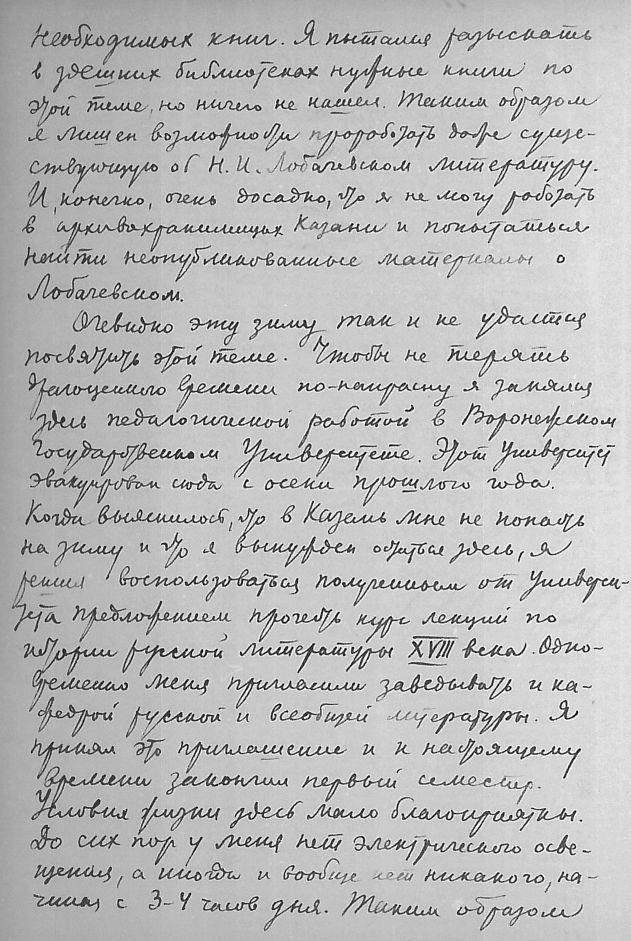 необходимых книг. Я пытался разыскать
в здешних библиотеках нужные книги по
этой теме, но ничего не нашел. Таким образом
я лишен возможности проработать даже суще-
ствующую об Н. И. Лобачевском литературу.
И, конечно, очень досадно, что я не могу работать
в архивохранилищах Казани и попытаться
найти неопубликованные материалы о
Лобачевском.
Очевидно эту зиму так и не удастся
посвятить этой теме. Чтобы не терять
драгоценного времени по-напрасну я занялся
здесь педагогической работой в Воронежском
Государственном Университете. Этот Университет
эвакуирован сюда с осени прошлого года.
Когда выяснилось, что в Казань мне не попасть
на зиму и что я вынужден остаться здесь, я
решил воспользоваться полученным от Универси-
тета предложением прочесть курс лекций по
истории русской литературы XVIII века. Одно-
временно меня пригласили заведывать и ка-
федрой русской и всеобщей литературы. Я
принял это приглашение и к настоящему
времени закончил первый семестр.
Условия жизни здесь мало благоприятны.
До сих пор у меня нет электрического осве-
щения, а иногда и вообще нет никакого, на-
чиная с 3-4 часов дня. Таким образом